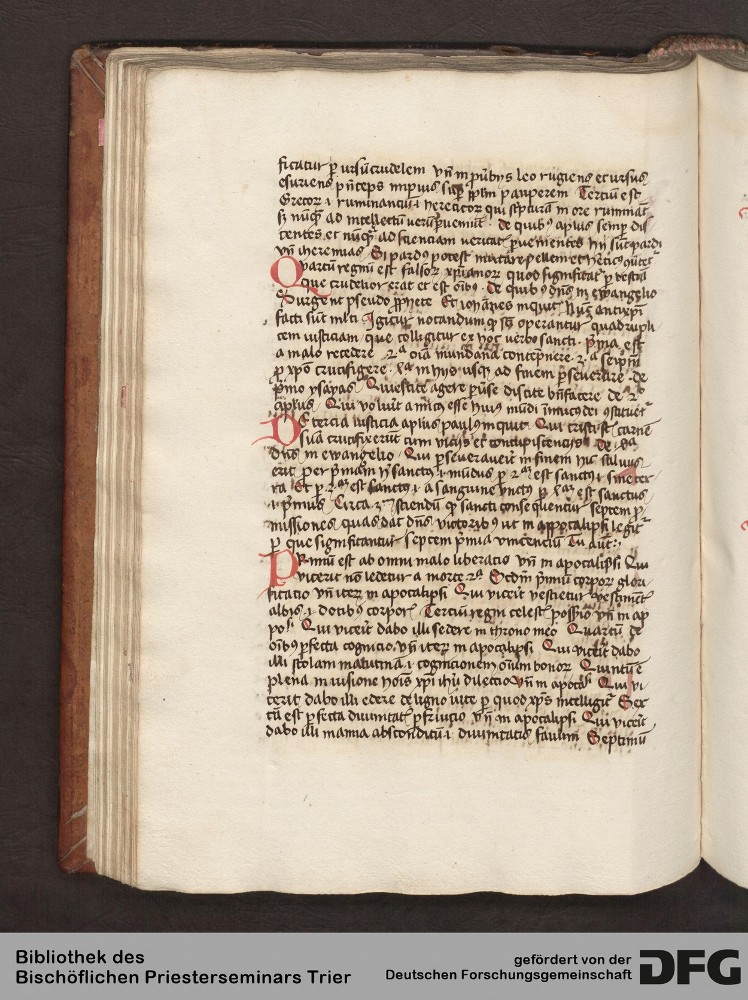 ficatur ꝑ ursū crudelem vn̄ in pūbijs leo rugiens et ursus
esuriens pn̄ceps impius sup pplm pauperem Terciū est
Grecor i ruminanciū i hereticor qui scpturā in ore rumināt
sʒ nūqᷓ ad intellectū verū pueniūt de quibꝯ aplus semp dis
centes et nūqᷓ ad scienciam veritatꝭ pvenientes hij sūt pardi
vn̄ iheremias Si pardꝯ potest mutare pellem et hereticꝰ
Quartū regnū est falsoꝝ xpianoꝝ quod significatꝰ ꝑ bestiā
que crudelior erat et est oībꝯ de quibꝯ dn̄s in ewangelio
Surgent pseudo pphete Et iohannes inquit Nūc antixpi
facti sūt mlti Igitur notandum qꝫ sti operantur quadrupli
cem iusticiam que colligitur ex hoc verbo sancti pma est
a malo recedere 2ᵃ oīa mundana contēpnere 3ᵃ seipm
ꝑ xpo crucifigere 4ᵃ in hijs usqꝫ ad finem pseverare de
pmo ysayas Quiescite agere puse discite bn̄facere de 2ᵃ
aplus Qui voluit amicꝯ esse huiꝯ mūdi inimicꝯ dei ꝯstituet
De tercia iusticia aplus paulus inquit Qui cristi sūt carnē
suā crucifixerūt cum vicijs et concupiscencijs de 4ᵃ
dn̄s in ewangelio Qui pseveraverit in finem hic saluus
erit per pmam iꝰ sanctꝯ i mūdus ꝑ 2ᵃᵐ est sanctꝯ i sine ter
ra Et ꝑ 3ᵃᵐ est sanctꝯ i a sanguine vnctꝯ ꝑ 4ᵃᵐ est sanctus
i firmus Circa 3ᵐ sciendū qꝫ sancti consequentur septem p
missiones quas dat dn̄s victoribꝯ ut in appocalipsi legitꝰ
ꝑ que significantur septem pmia vincenciū Tu aut̄
Primū est ab omni malo liberatio vn̄ in apocalipsi Qui
vicerit nō ledetur a morte 2ᵃ Scdm pmiū corporꝭ glori
ficatio vn̄ iterꝫ in apocalipsi Qui vicerit vestietur vestimētꝭ
albis i dotibꝯ corporꝭ Tercium regni celestꝭ possessio vn̄ in ap
poᶜ Qui vicerit dabo illi sedere in throno meo Quartū de
oībꝯ pfecta cognicio vn̄ iterꝫ in apocalipsi Qui vicerit dabo
illi stolam matutinā i cognicionem oīum bonoꝝ Quintū ē
plena in visione hoīs xpi ihu dilectio vn̄ in apocalꝭ Qui vi
cerit dabo illi edere de ligno vite ꝑ quod xps intelligitꝰ Sex
tū est pfecta divinitatꝭ pfruicio vn̄ in apocalipsi Qui vicerit
dabo illi manna absconditū i divinitatis faulim Septimū
Bibliothek des
Bischöflichen Priesterseminars Trier
gefördert von der
Deutschen Forschungsgemeinschaft
DFG